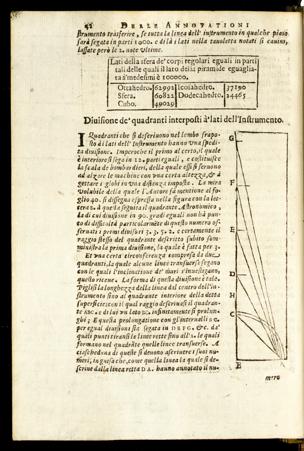 42 DELLE ANNOTATIONI
strumento trasferire, se tutta la linea dell'instrumento in qualche piano
sarà segata in parti 1000. e di là i lati nella tauoletta notati si cauino,
lassate però le 2. note vltime.
Lati della sfera de' corpi regolari eguali in parti
tali delle quali il lato della piramide eguaglia-
ta a' medesimi è 100000.
Ottahedro. 62991 Icosahedro. 37190
Sfera. 60822 Dodecahedro. 24463
Cubo. 49029
Diuisione de' quadranti interposti a' lati dell'Instrumento.
I Quadranti che si descriuono nel lembo
di lati dell'Instrumento hanno vna
diuisione. Imperoche il primo al certo, il quale
è interiore si sega in 12. parti eguali, e costituisce
la scala de bombardieri, della quale essi si seruono
ad alzare le machine con vna certa altezza, &
gettare i globi in vna distanza imposta. La mira
volubile della quale l'Autore fà mentione al fo-
glio 40. si dissegna espressa nella figura con la let-
tera 2. à questa seguita il quadrante Astronomico,
la di cui diuisione in 90. gradi eguali non hà pun-
to di difficoltà
seruati i primi diuisori 3. 3. 5. 2. e certamente il
raggio stesso del quadrante descritto subito som-
ministra la prima diuisione, la quale è fatta per 3.
Et vna certa circonferenza compresa da due
quadranti, la quale alcune linee trasuersali segano
con le quali l'inclinatione de' muri s'inuestigano,
questo riceue. La forma di questa diuisione è tale.
Piglisi la longhezza della linea dal centro dell'in-
strumento sino al quadrante interiore della detta
superficie: con il qual raggio descriuasi il quadran-
te
ghi; E questa prolongatione con gl'interualli BC.
per egual diuisione sia segata in DEFG. &c. da'
quali punti tirasi la linee rette sino all'I. le quali
formano nel quadrante quelle linee trasuerse. A
ciascheduna di queste si deuono ascriuere i suoi nu-
meri, in guisa che, come quella linea la quale si de-
scriue dalla linea retta DA. hanno annotato il nu-
mero
G
F
E
D
H
C
B
A